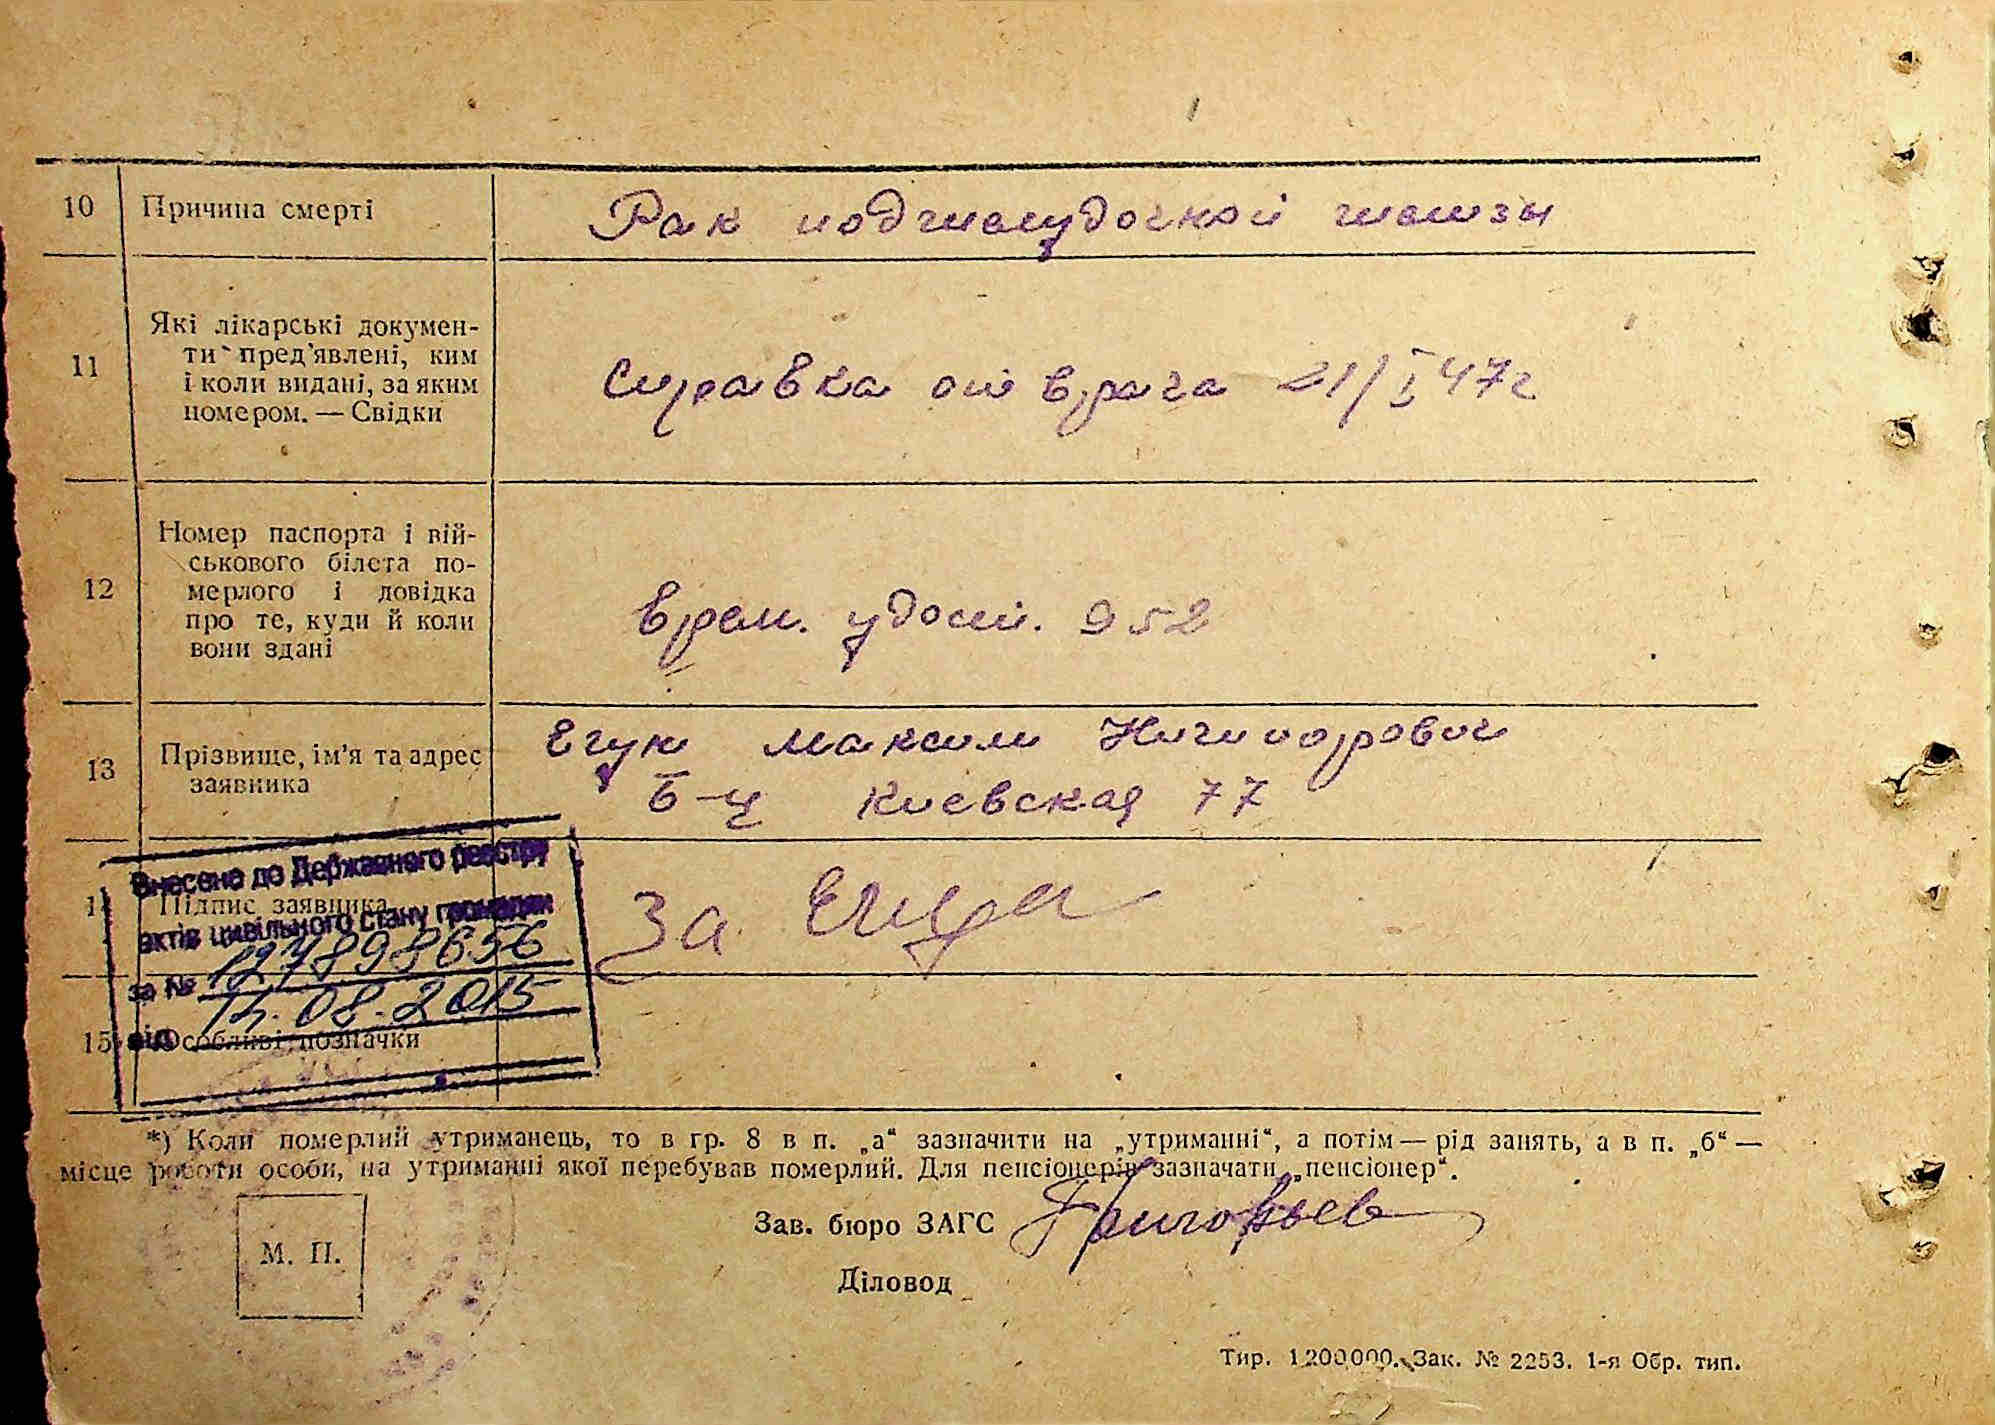 10 Причина смерті Рак поджелудочной железы
11 Які лікарські докумен-
ти пред'явлені, ким
і коли видані, за яким
номером. — Свідки
Справка от врача 21/I 47г
12 Номер паспорта і вій-
ськового білета по-
мерлого і довідка
про те, куди й коли
вони здані
Врем. удост. 952
13 Прізвище, ім'я та адрес
заявника
Егун Максим Ничипорович
Б-Ц Киевская 77
Підпис заявника
За
15 Особливі позначки
Внесено до Державного реєстру
актів цивільного стану громадян
за № 127898656
від 14.08.2015
*) Коли померлий утриманець, то в гр. 8 в п. „а“ зазначити на „утриманні“, а потім — рід занять, а в п. „б“ —
місце роботи особи, на утриманні якої перебував померлий. Для пенсіонерів зазначати „пенсіонер“.
М. П.
Зав. бюро ЗАГС Григорьев
Діловод
Тир. 1200000. Зак. № 2253. 1-я Обр. тип.